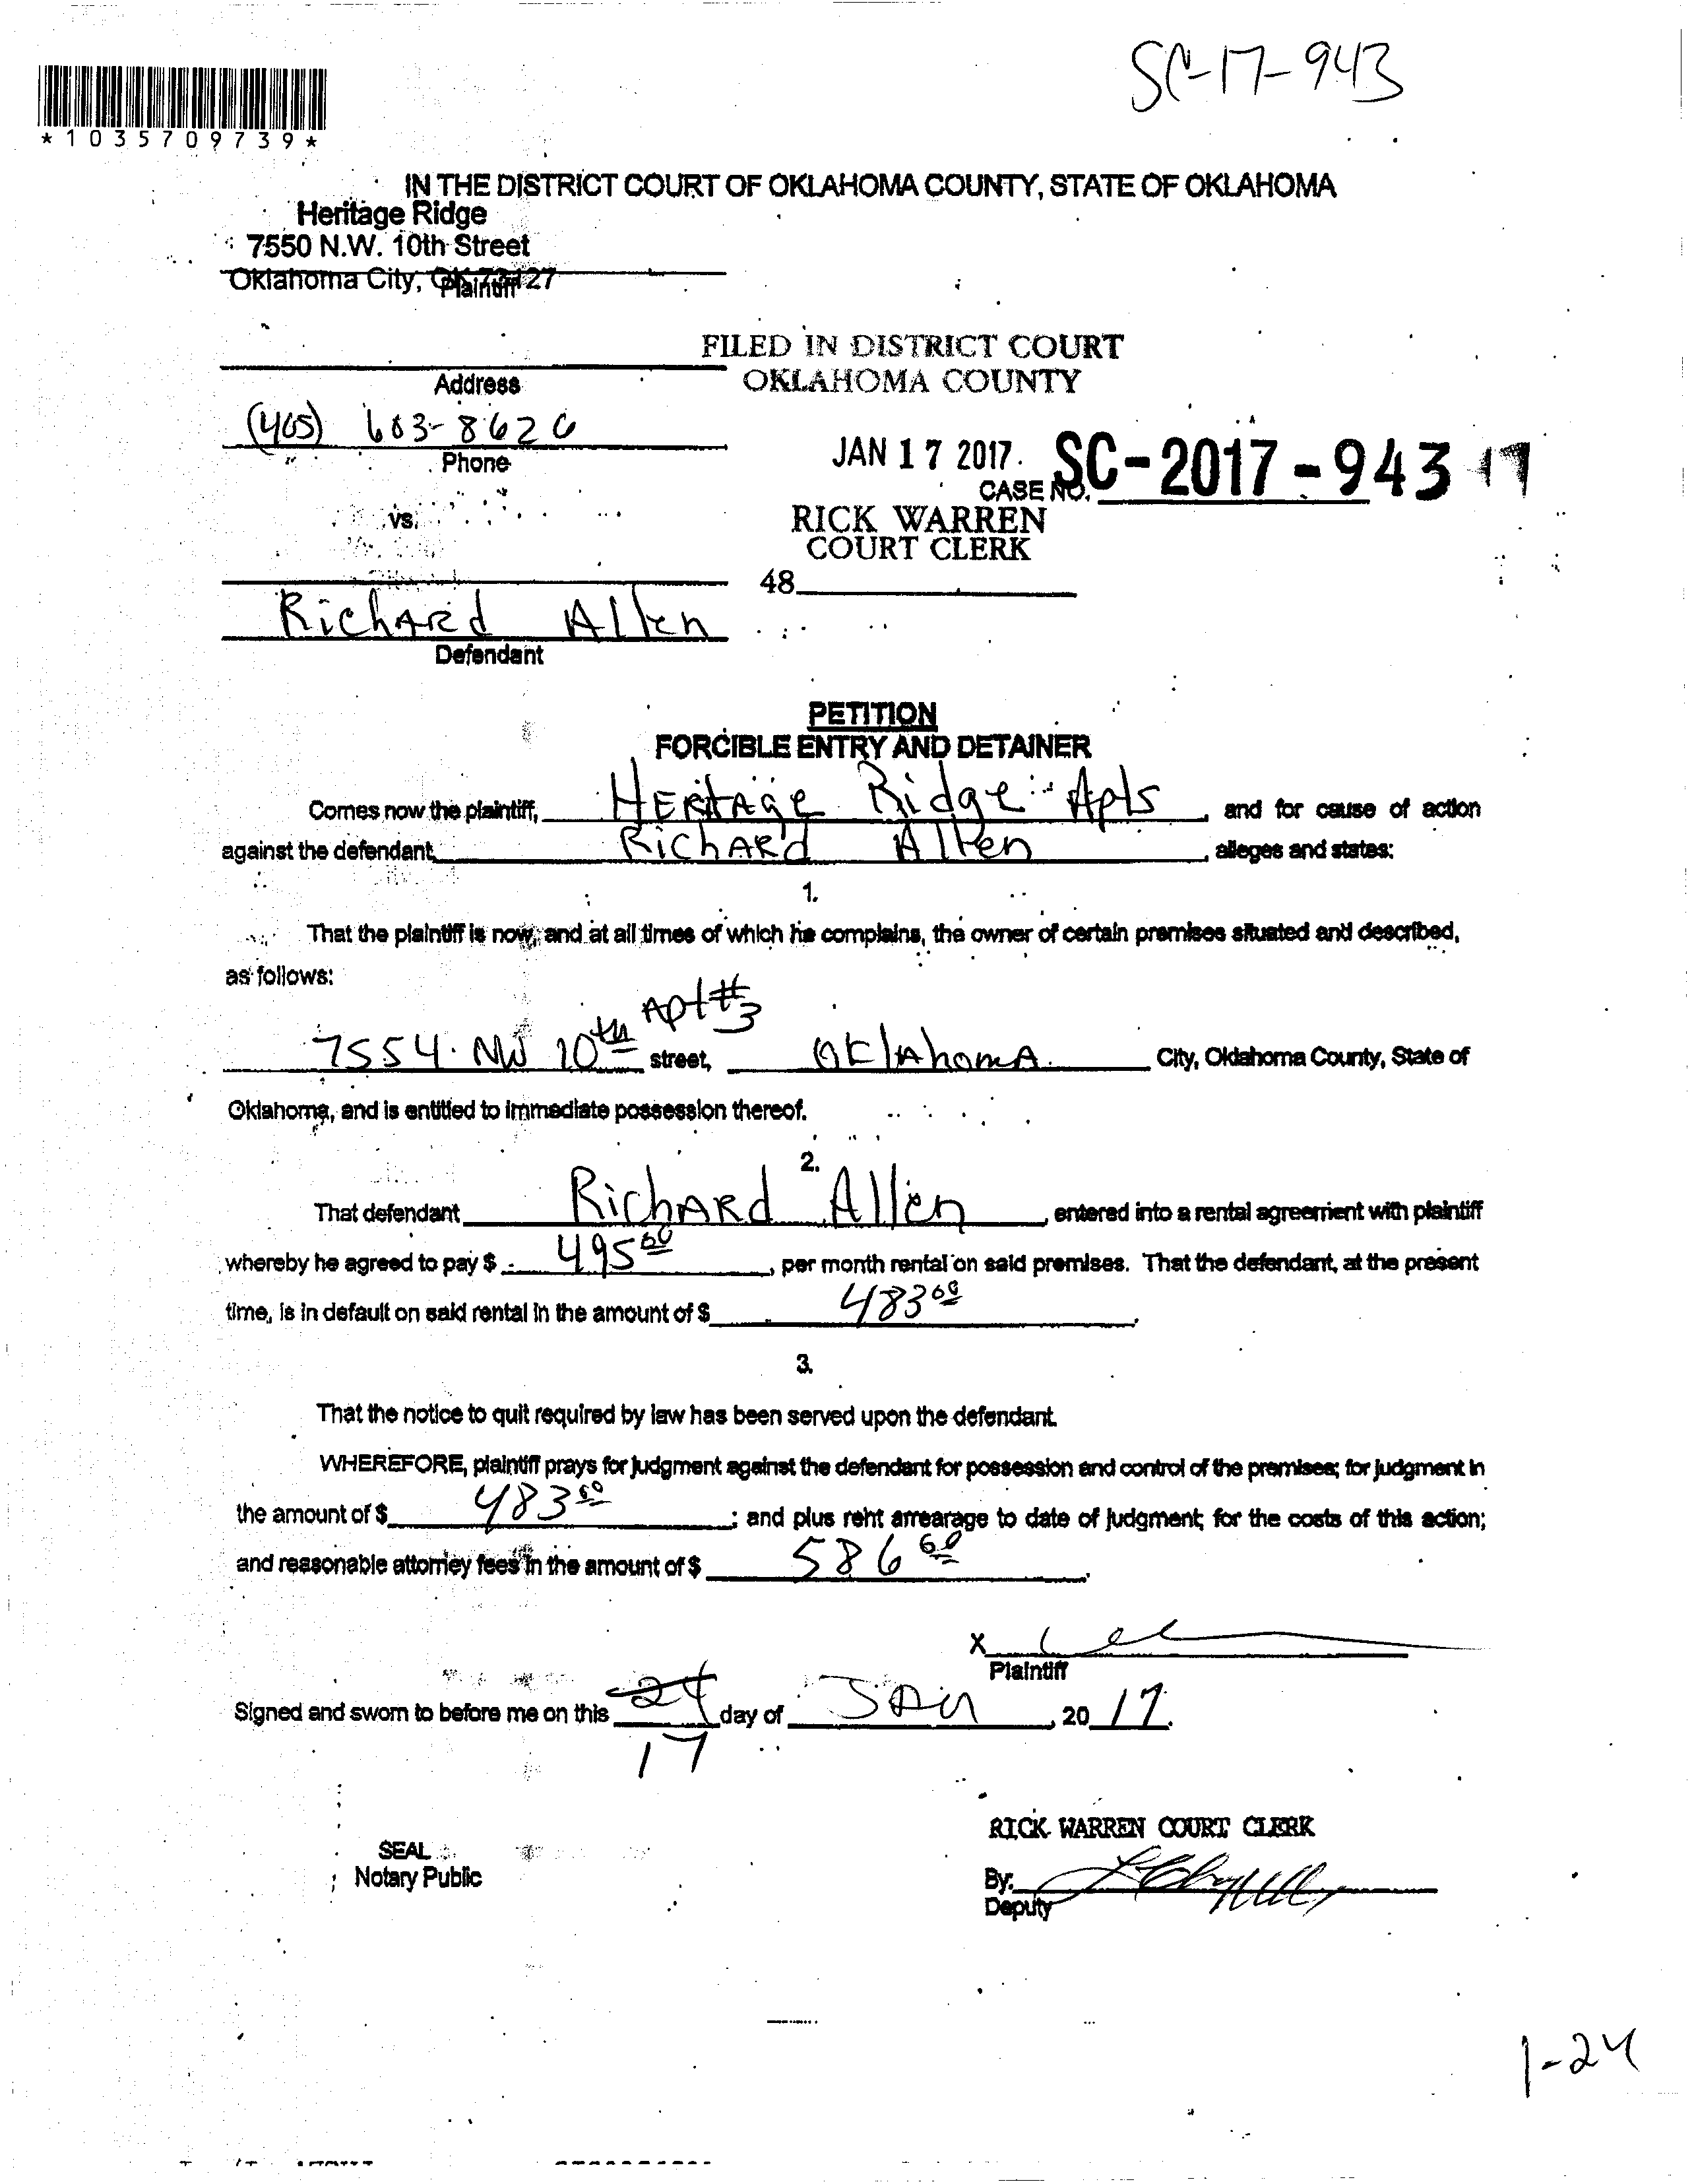 SC-17-943
*1035709739*
IN THE DISTRICT COURT OF OKLAHOMA COUNTY, STATE OF OKLAHOMA
Heritage Ridge
7550 N.W. 10th Street
Oklahoma City, OK 73127
Plaintiff
FILED IN DISTRICT COURT
OKLAHOMA COUNTY
Address
(405) 603-8626
Phone
JAN 17 2017
CASE NO. SC-2017-943 17
vs.
RICK WARREN
COURT CLERK
48
Richard Allen
Defendant
PETITION
FORCIBLE ENTRY AND DETAINER
Comes now the plaintiff, Heritage Ridge Apts, and for cause of action
against the defendant, Richard Allen, alleges and states:
1.
That the plaintiff is now, and at all times of which he complains, the owner of certain premises situated and described,
as follows:
Apt #3
7554 NW 10th street, Oklahoma City, Oklahoma County, State of
Oklahoma, and is entitled to immediate possession thereof.
2.
That defendant Richard Allen, entered into a rental agreement with plaintiff
whereby he agreed to pay $ 495 00, per month rental on said premises. That the defendant, at the present
time, is in default on said rental in the amount of $ 483 00.
3.
That the notice to quit required by law has been served upon the defendant.
WHEREFORE, plaintiff prays for judgment against the defendant for possession and control of the premises; for judgment in
the amount of $ 483 00; and plus reht arrearage to date of judgment; for the costs of this action;
and reasonable attorney fees in the amount of $ 586 60.
X
Plaintiff
Signed and sworn to before me on this 24 day of Jan, 2017.
17
RICK WARREN COURT CLERK
SEAL
Notary Public
By:
Deputy
1-24